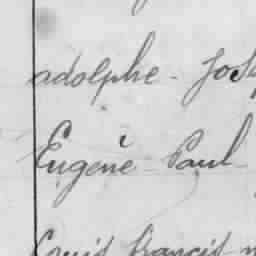 adolphe - Jos
Eugène - Paul
Louis francis